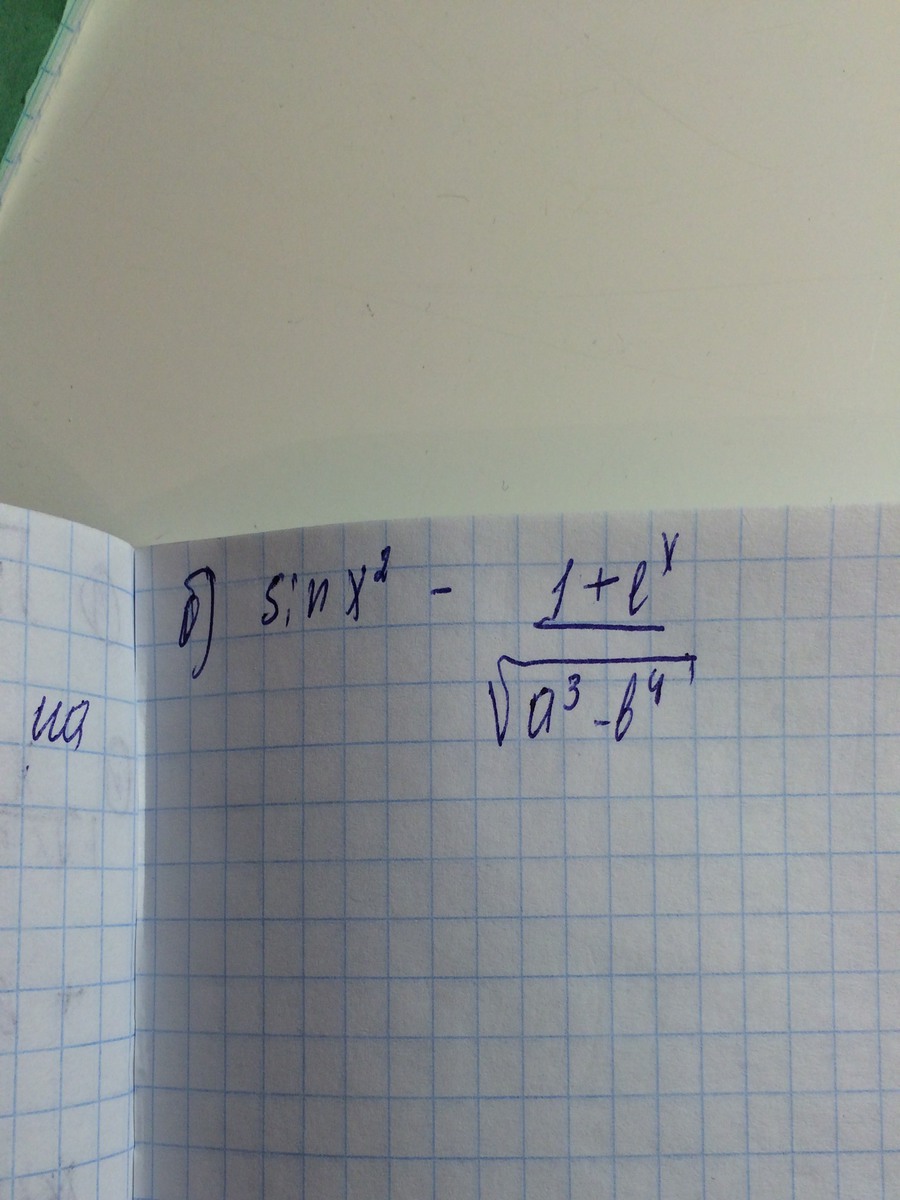 на
б) sin x² - (1+e^x)/√(a³-b⁴)